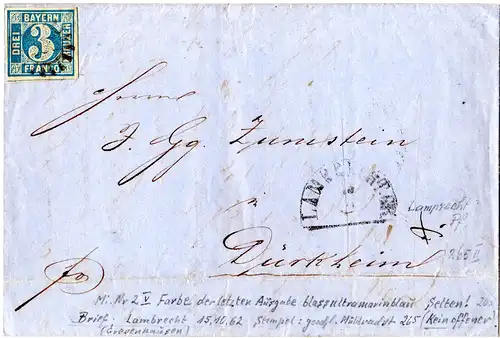 BAYERN
DREI 3 KREUZER
FRANCO
Herrn
J. Gg. Zumstein
LAMBRECHT
Lamprecht
Pf
265 II
Dürkheim
fro
Mi. Nr 2 V Farbe der letzten Ausgabe blassultramarinblau Selten! 20x
Brief: Lambrecht 15.10.62 Stempel: geschl. Mühlradst 265 (Kein offener)
(Grevenhausen)